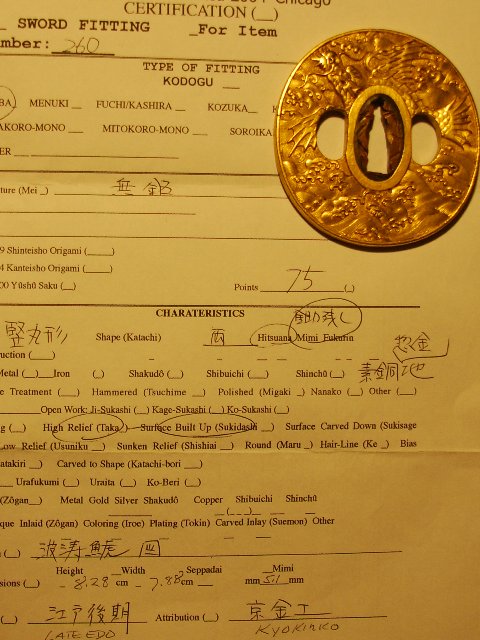 Chicago
CERTIFICATION (__)
SWORD FITTING _For Item
mber: 260
TYPE OF FITTING
KODOGU __
BA MENUKI __ FUCHI/KASHIRA __ KOZUKA__
AKORO-MONO ___ MITOKORO-MONO ___ SOROIKA
ER
ture (Mei _) 無銘
9 Shinteisho Origami (____)
4 Kanteisho Origami (____)
00 Yūshū Saku (____)
Points 75 (_)
CHARATERISTICS
鋤残し
竪丸形 Shape (Katachi) 両 Hitsuana Mimi Fukurin
惣金
uction (__)
Metal (__) Iron (__) Shakudô (__) Shibuichi (__) Shinchū (__) 素銅地
e Treatment (__) Hammered (Tsuchime _) Polished (Migaki _) Nanako (__) Other (__)
Open Work: Ji-Sukashi (__) Kage-Sukashi (__) Ko-Sukashi (__)
g (__) High Relief (Taka_) Surface Built Up (Sukidashi _) Surface Carved Down (Sukisage
Low Relief (Usuniku _) Sunken Relief (Shishiai _) Round (Maru _) Hair-Line (Ke _) Bias
atakiri __) Carved to Shape (Katachi-bori ___)
Urafukumi (__) Uraita (__) Ko-Beri (__)
(Zôgan___) Metal Gold Silver Shakudô Copper Shibuichi Shinchū
que Inlaid (Zôgan) Coloring (Iroe) Plating (Tokin) Carved Inlay (Suemon) Other
(__) 波涛鯱図
Height Width Seppadai Mimi
sions (__) - 8.28 cm - 7.88 cm mm 5.1 mm
(__) 江戸後期 Attribution (__) 京金工
LATE EDO KYO KINKO